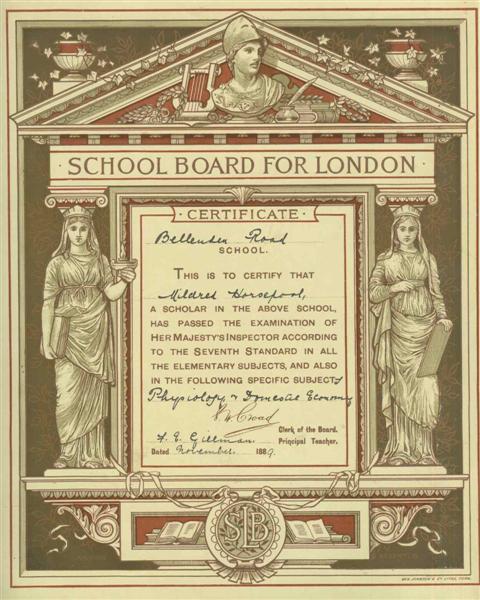 · SCHOOL BOARD FOR LONDON ·
· CERTIFICATE ·
Bellenden Road
SCHOOL.
THIS IS TO CERTIFY THAT
Mildred Horsepool,
A SCHOLAR IN THE ABOVE SCHOOL,
HAS PASSED THE EXAMINATION OF
HER MAJESTY'S INSPECTOR ACCORDING
TO THE SEVENTH STANDARD IN ALL
THE ELEMENTARY SUBJECTS, AND ALSO
IN THE FOLLOWING SPECIFIC SUBJECTS
Physiology & Domestic Economy
Clerk of the Board.
F. E. Gillman. Principal Teacher.
Dated November. 1889.
SBL